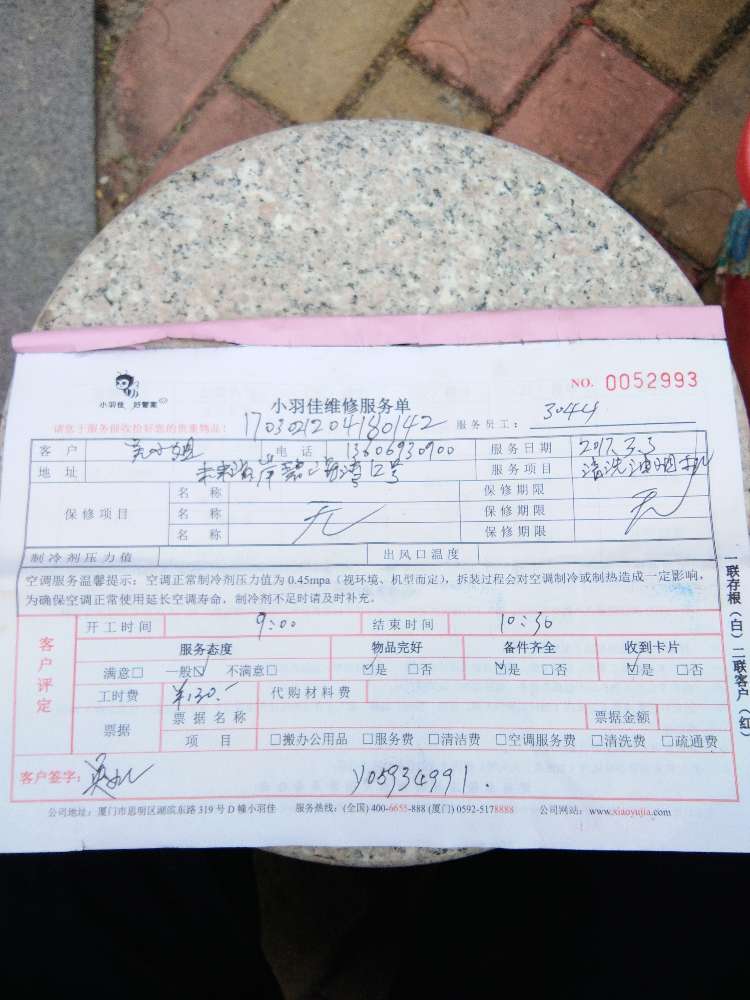 NO. 0052993
小羽佳 好管家
小羽佳维修服务单
请您于服务前收拾好您的贵重物品!
1703021204180142
服务员工: 3044
客户 吴小姐 电话 13606930900 服务日期 2017.3.3
地址 未来海岸 湾 号 服务项目 清洗油烟机
保修项目 名称 保修期限
名称 无 保修期限 无
名称 保修期限
制冷剂压力值 出风口温度
空调服务温馨提示:空调正常制冷剂压力值为0.45mpa(视环境、机型而定),拆装过程会对空调制冷或制热造成一定影响,
为确保空调正常使用延长空调寿命,制冷剂不足时请及时补充。
一联存根(白)二联客户(红)
客户评定
开工时间 9:00 结束时间 10:30
服务态度 物品完好 备件齐全 收到卡片
满意□ 一般☑ 不满意□ ☑是 □否 ☑是 □否 ☑是 □否
工时费 ¥130.- 代购材料费
票据 票据名称 票据金额
项目 □搬办公用品 □服务费 □清洁费 □空调服务费 □清洗费 □疏通费
客户签字: Y05934991.
公司地址:厦门市思明区湖滨东路319号D幢小羽佳 服务热线:(全国)400-6655-888 (厦门)0592-5178888 公司网站:www.xiaoyujia.com